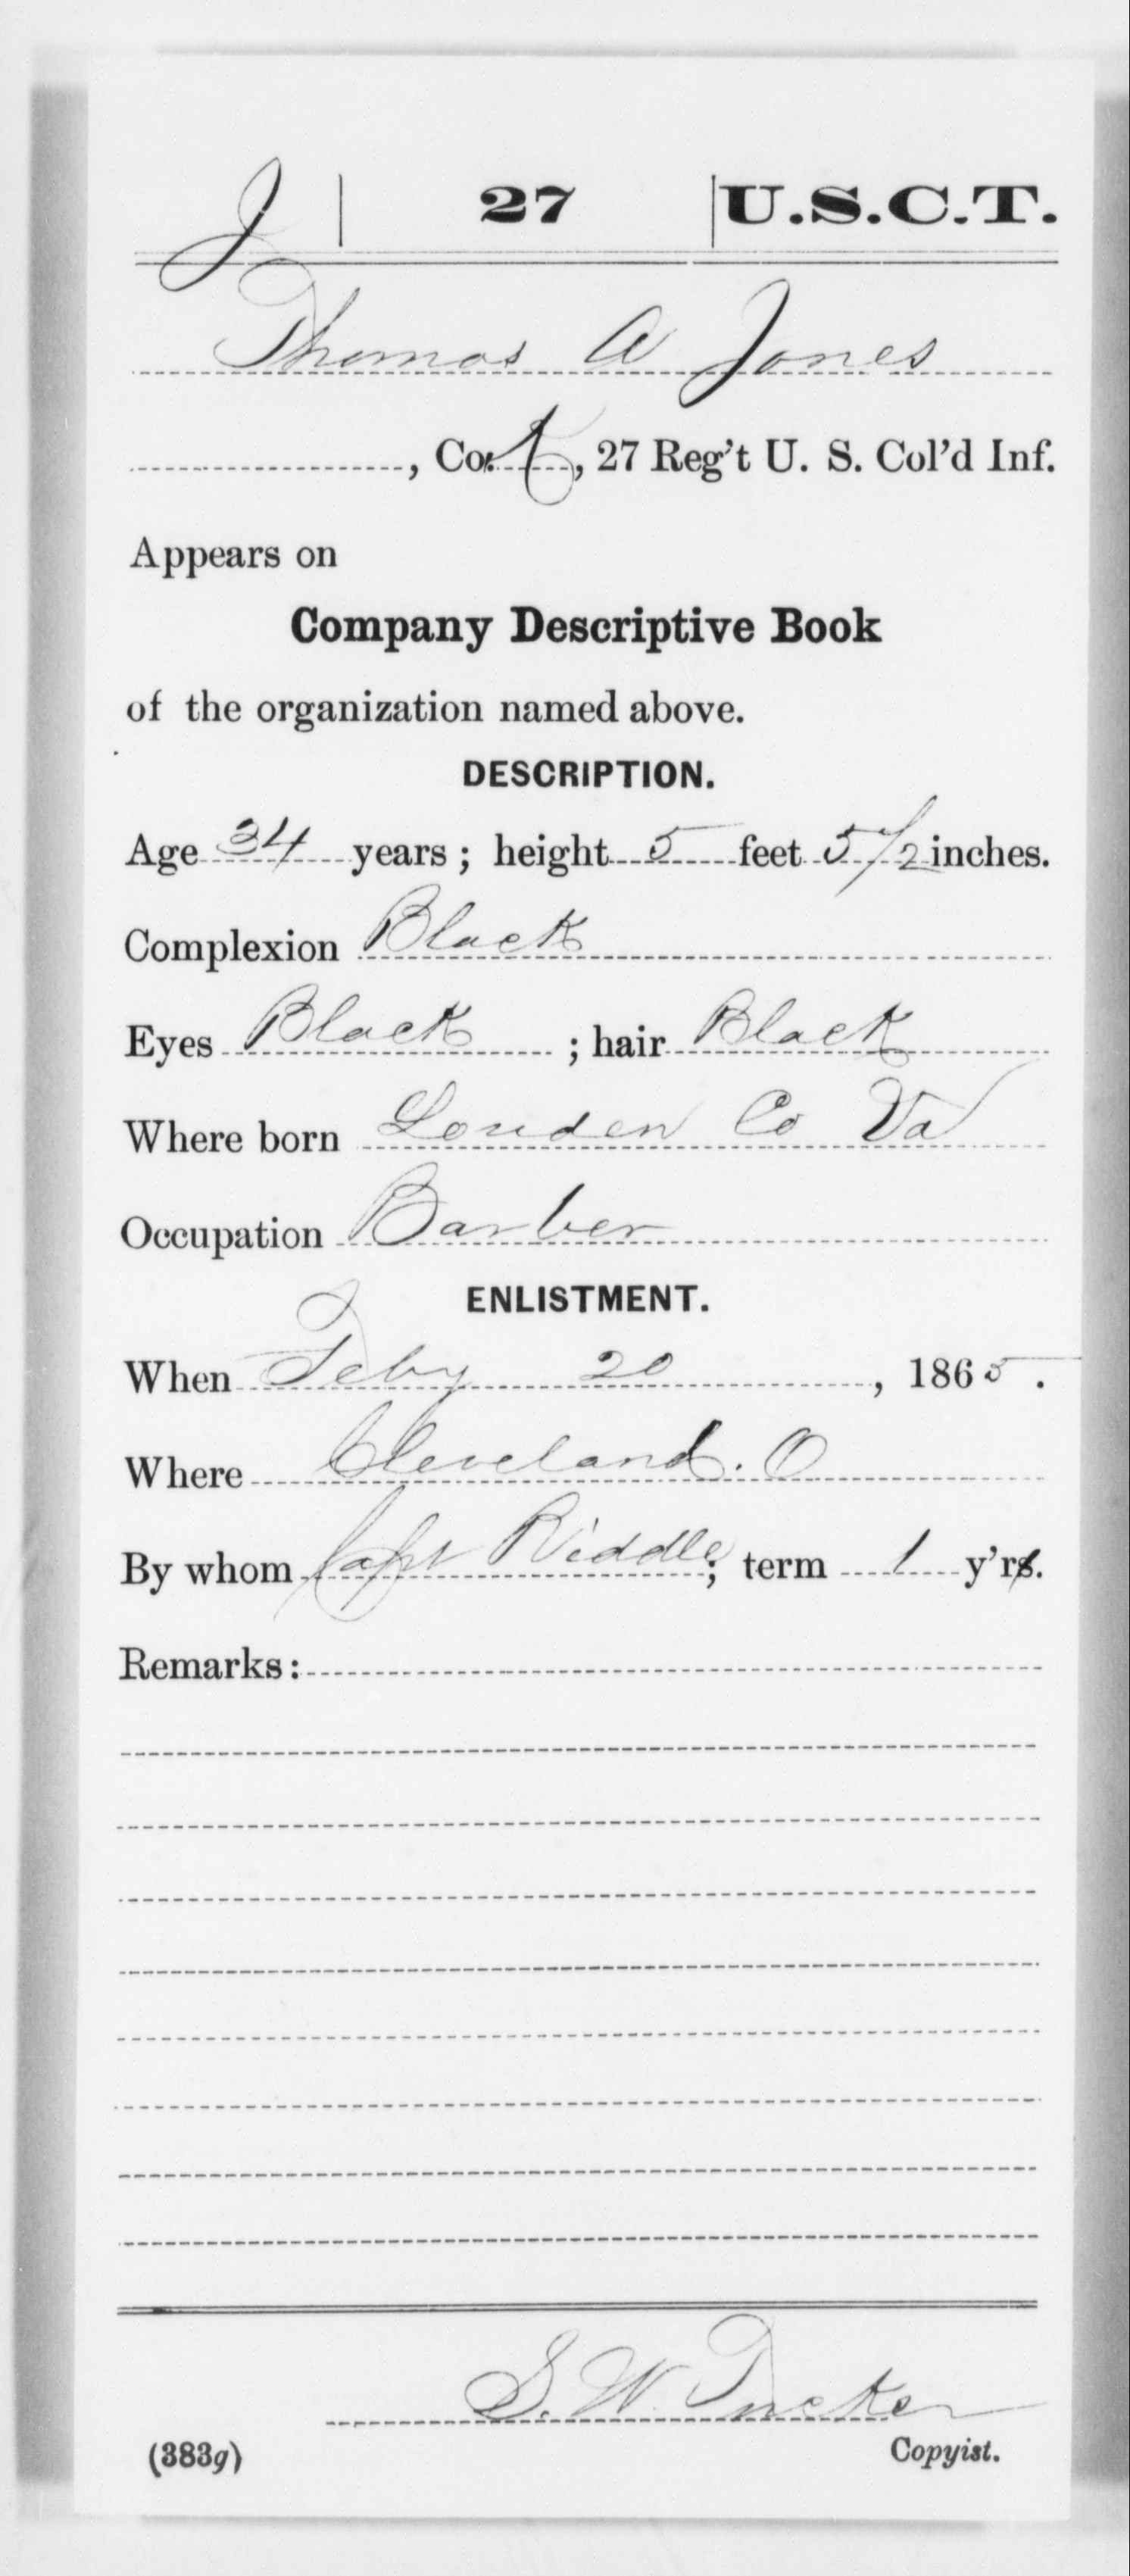 J | 27 | U.S.C.T.
Thomas A Jones
, Co. K, 27 Reg't U. S. Col'd Inf.
Appears on
Company Descriptive Book
of the organization named above.
DESCRIPTION.
Age 34 years; height 5 feet 5 1/2 inches.
Complexion Black
Eyes Black ; hair Black
Where born Louden Co Va
Occupation Barber
ENLISTMENT.
When Feby 20, 1865.
Where Cleveland. O
By whom Capt Riddle; term 1 y'rs.
Remarks:
S. W. Tucker
(383g) Copyist.